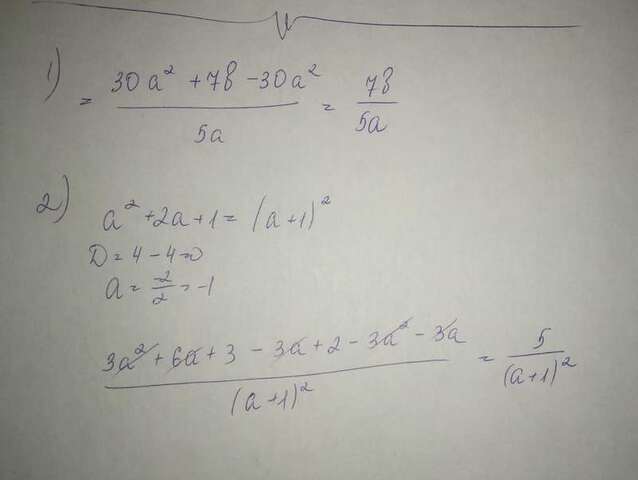 1) = (30a² + 7в - 30a²) / 5a = 7в / 5a
2) a² + 2a + 1 = (a + 1)²
D = 4 - 4 = 0
a = -2/2 = -1
(3a² + 6a + 3 - 3a + 2 - 3a² - 3a) / (a + 1)² = 5 / (a + 1)²